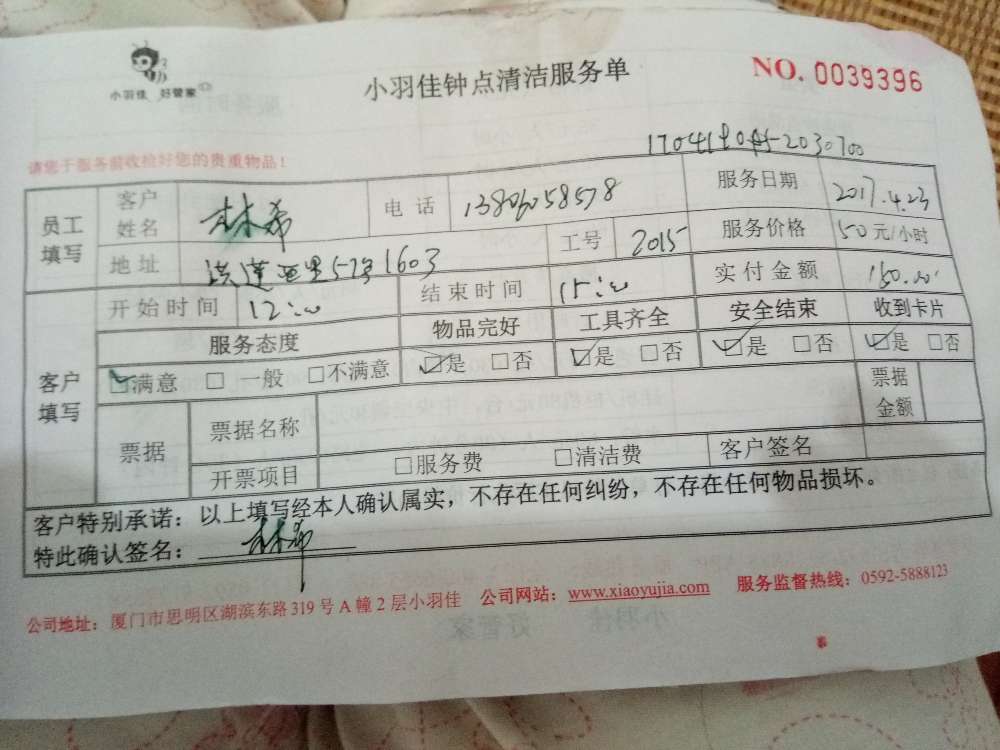 小羽佳 好管家
小羽佳钟点清洁服务单
NO. 0039396
请您于服务前收检好您的贵重物品！
员工填写 客户姓名 林希 电话 服务日期 2017.4.23
地址 洪莲西里57号1603 工号 2015 服务价格 50元/小时
客户填写 开始时间 12:00 结束时间 15:00 实付金额 150.00
服务态度 物品完好 工具齐全 安全结束 收到卡片
☑满意 □一般 □不满意 ☑是 □否 ☑是 □否 ☑是 □否 ☑是 □否
票据 票据名称 票据金额
开票项目 □服务费 □清洁费 客户签名
客户特别承诺：以上填写经本人确认属实，不存在任何纠纷，不存在任何物品损坏。
特此确认签名：林希
公司地址：厦门市思明区湖滨东路319号A幢2层小羽佳 公司网站：www.xiaoyujia.com 服务监督热线：0592-5888123